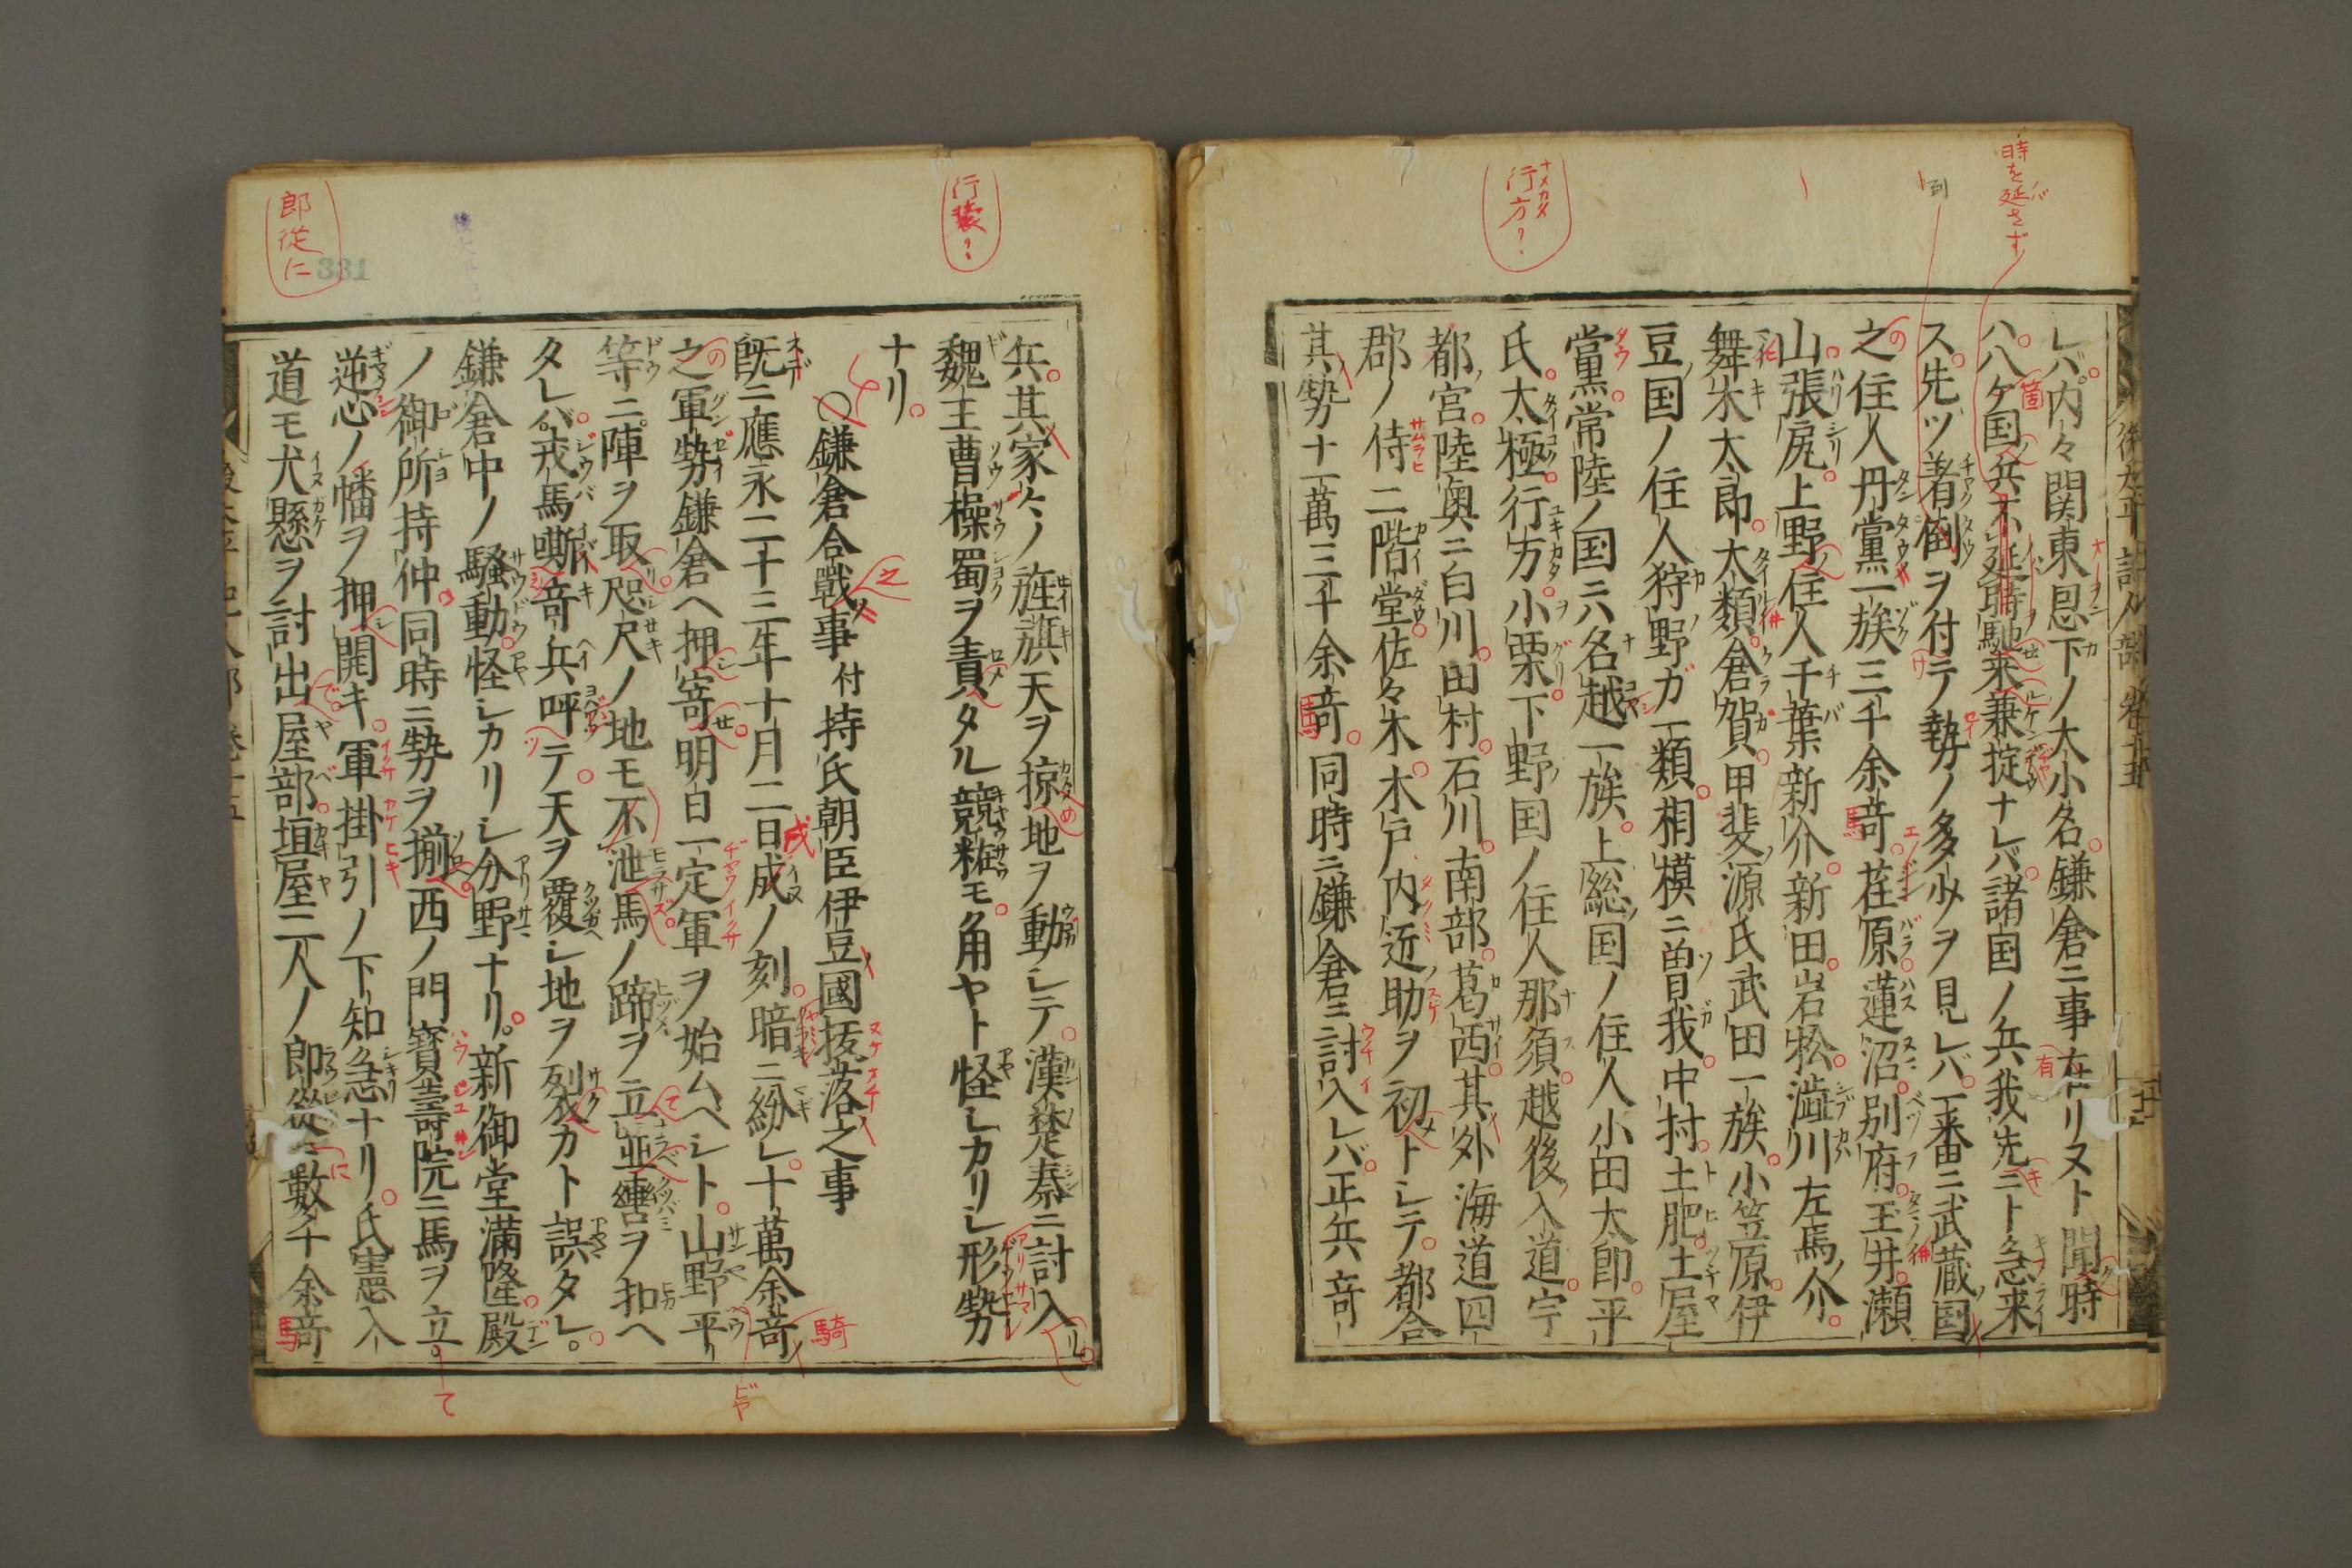 レバ内々関東恩下ノ大小名鎌倉ニ事在リヌト聞時
ハ八ケ国ノ兵不延時馳来兼掟ナレバ諸国ノ兵我先ニト急来
ス先ヅ着到ヲ付テ勢ノ多少ヲ見レバ一番ニ武蔵国
之住人丹黨一族三千余竒荏原蓮沼別府玉井瀬
山張尻上野住人千葉新介新田岩松澁川左馬介
舞木太郎大類倉賀甲斐源氏武田一族小笠原伊
豆国ノ住人狩野ガ一類相模ニ曽我中村土肥土屋
黨常陸ノ国ニ六名越一族上総国ノ住人小田太郎平
氏太極行方小栗下野国ノ住人那須越後入道宇
都宮陸奥ニ白川田村石川南部葛西其外海道四
郡ノ侍二階堂佐々木木戸内近助ヲ初トシテ都合
其勢十一萬三千余竒同時ニ鎌倉ニ討入レバ正兵竒
兵其家々ノ旌旗天ヲ掠地ヲ動シテ漢楚秦ニ討入
魏王曹操蜀ヲ責タル競粧モ角ヤト怪シカリシ形勢
ナリ
○鎌倉合戰事付持氏朝臣伊豆國抜落之事
既ニ應永二十三年十月二日成ノ刻暗ニ紛レ十萬余竒
之軍勢鎌倉ヘ押寄明日一定軍ヲ始ムヘシト山野平
等ニ陣ヲ取咫尺ノ地モ不泄馬ノ蹄ヲ立並轡ヲ扣ヘ
タレバ戎馬嘶竒兵呼テ天ヲ覆シ地ヲ裂カト誤タレ
鎌倉中ノ騒動怪シカリシ分野ナリ新御堂滿隆殿
ノ御所持仲同時ニ勢ヲ揃西ノ門寶壽院ニ馬ヲ立
逆心ノ幡ヲ押開キ軍掛引ノ下知急ナリ氏憲入
道モ犬懸ヲ討出屋部垣屋二人ノ郎從ニ數千余竒
時を延さず
行方?
ナメカタ
行装?
郎従に
331